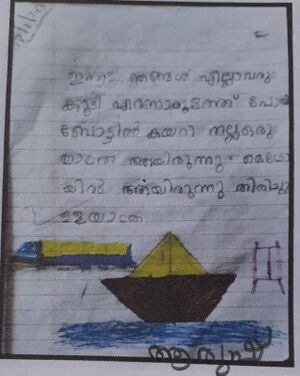 ഇന്ന് ഞങ്ങൾ എല്ലാവരും
കൂടി എറണാകുളത്ത് പോയി
ബോട്ടിൽ കയറി നല്ലഒരു
യാത്ര ആയിരുന്നു. മെട്രോ
യിൽ ആയിരുന്നു തിരിച്ചു
ഉള്ളയാത്ര